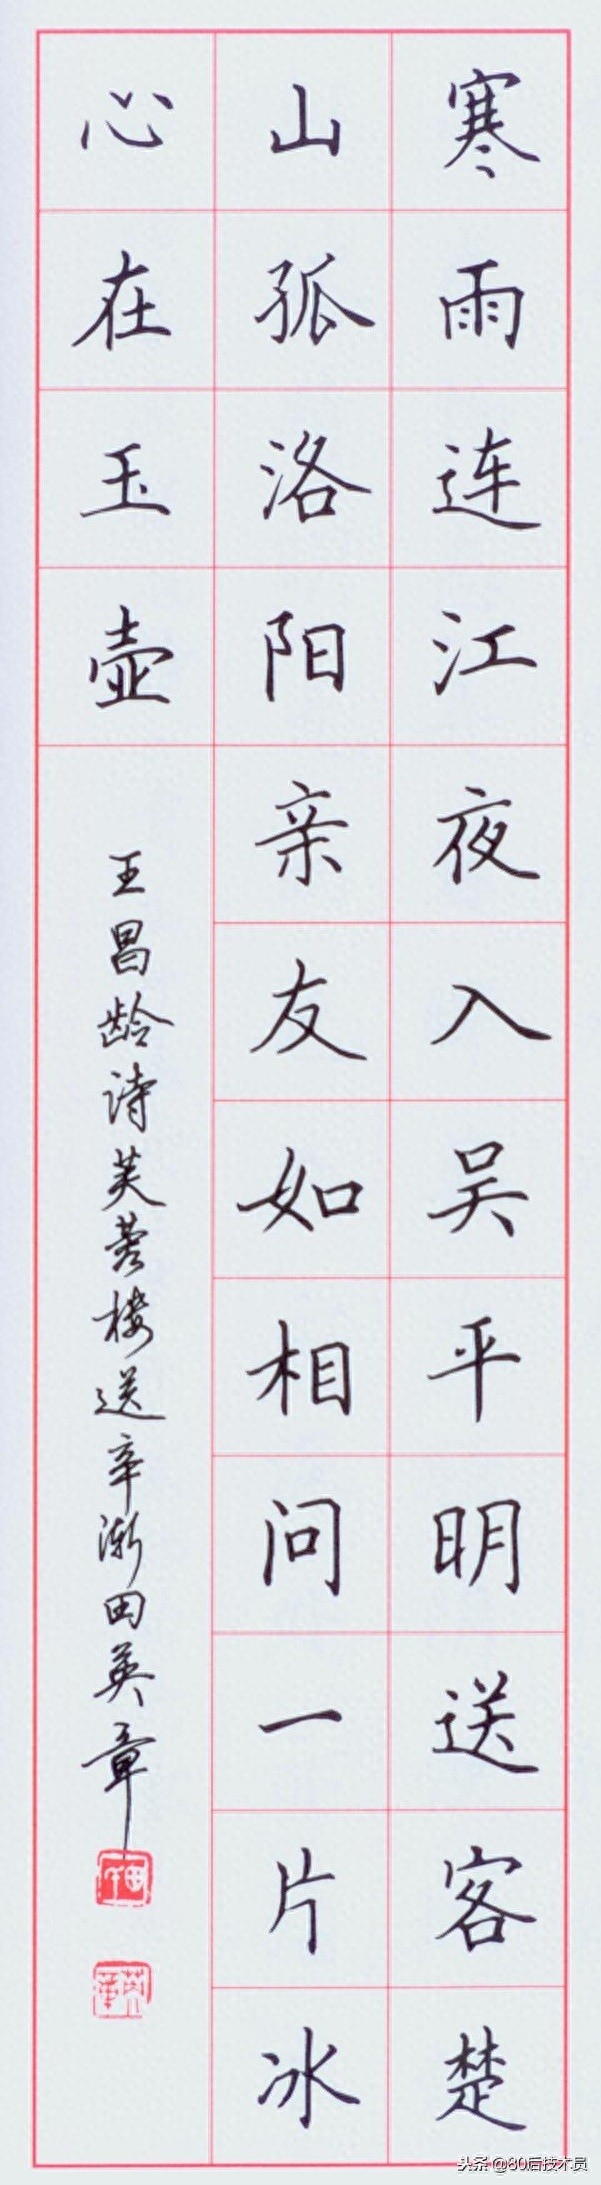 寒雨连江夜入吴平明送客楚
山孤洛阳亲友如相问一片冰
心在玉壶
王昌龄诗芙蓉楼送辛渐田英章
英章
头条@80后技术员